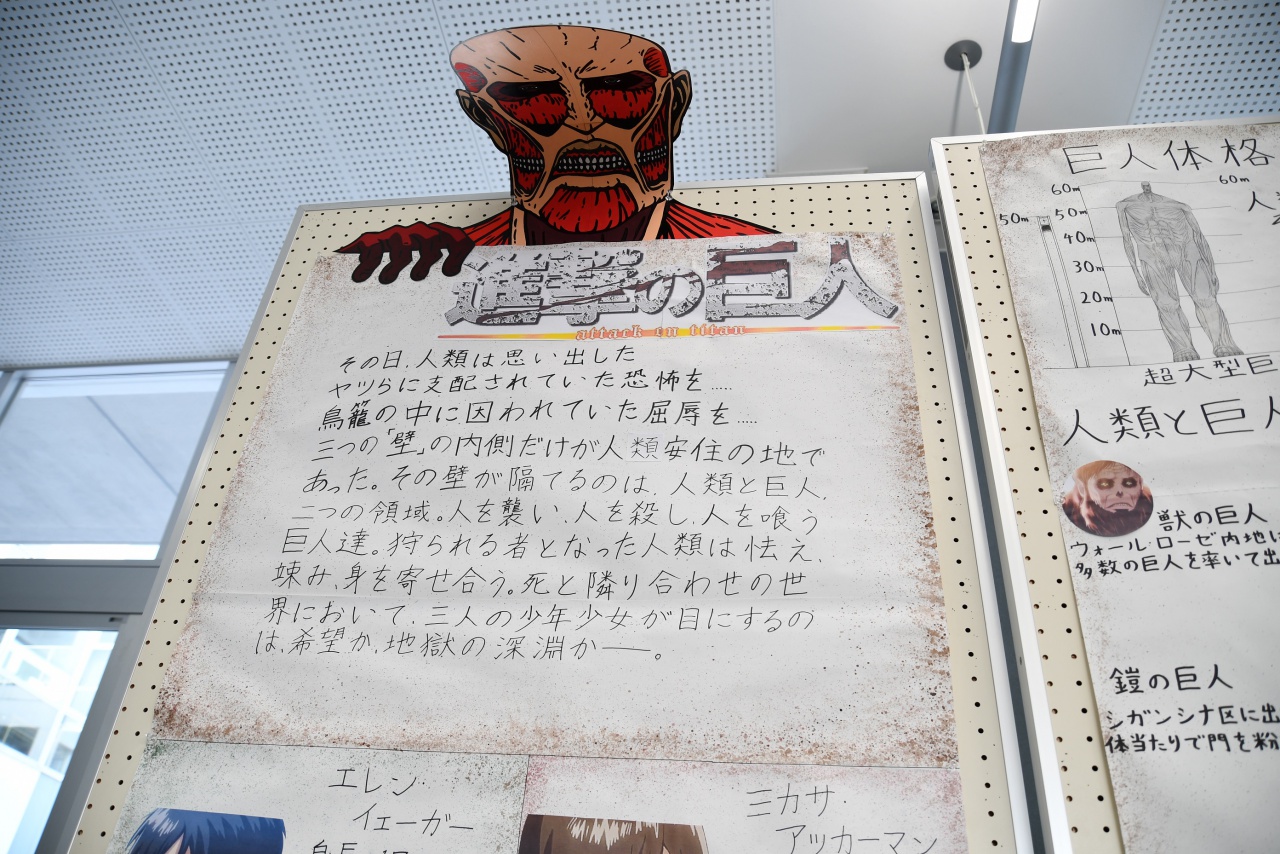 進撃の巨人
attack on titan
その日、人類は思い出した
ヤツらに支配されていた恐怖を……
鳥籠の中に囚われていた屈辱を……
三つの「壁」の内側だけが人類安住の地で
あった。その壁が隔てるのは、人類と巨人、
二つの領域。人を襲い、人を殺し、人を喰う
巨人達。狩られる者となった人類は怯え、
竦み、身を寄せ合う。死と隣り合わせの世
界において、三人の少年少女が目にするの
は、希望か、地獄の深淵か――。
エレン・
イェーガー
ミカサ・
アッカーマン
巨人体格
60m
60m
50m
50m
40m
30m
20m
10m
超大型巨
人類と巨人
獣の巨人
ウォール・ローゼ内地に
多数の巨人を率いて出
鎧の巨人
シガンシナ区に出
体当たりで門を粉